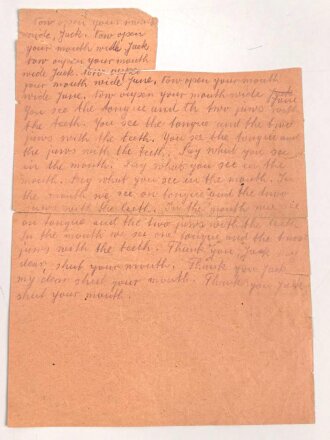 Now open your mouth
wide, Jack. Now open
your mouth wide, Jack
Now open your mouth
wide Jack. Now open
your mouth wide June, Now open your mouth
wide June, Now open your mouth wide June
You see the tongue and the two jaws with
the teeth. You see the tongue and the two
jaws with the teeth. You see the tongue and
the jaws with the teeth. Say what you see
in the mouth. Say what you see in the
mouth. Say what you see in the mouth. In
the mouth we see on tongue and the two
jaws with the teeth. In the mouth we see
on tongue and the two jaws with the teeth.
In the mouth we see one tongue and the two
jaws with the teeth. Thank you, Jack my
dear, shut your mouth. Thank you Jack
my dear shut your mouth. Thank you Jack
shut your mouth.